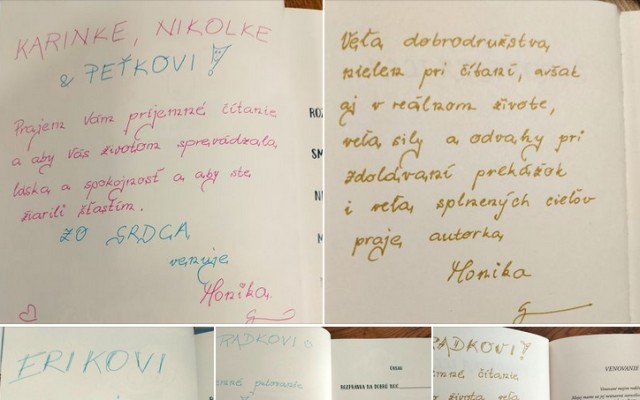 KARINKE, NIKOLKE
& PEŤKOVI!
Prajem Vám príjemné čítanie
a aby Vás životom sprevádzala
láska a spokojnosť a aby ste
žiarili šťastím.
ZO SRDCA
venuje
Monika
Veľa dobrodružstva,
nielen pri čítaní, avšak
aj v reálnom živote,
veľa sily a odvahy pri
zdolávaní prekážok
i veľa splnených cieľov
praje autorka
Monika
ERIKOVI
RADKOVI
putovanie
ROZPRÁVKA NA DOBRÚ NOC
RADKOVI!
čítanie
VENOVANIE